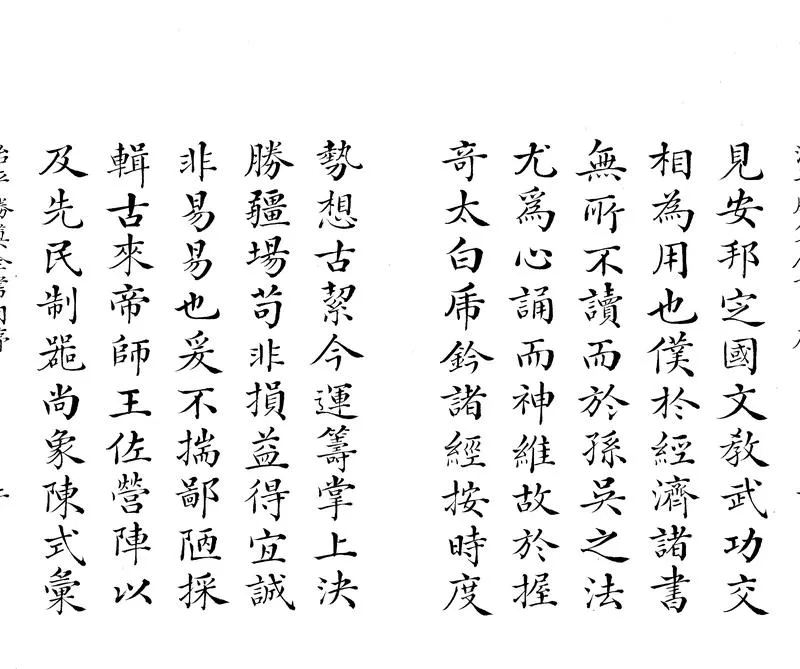 見安邦定國文教武功交
相為用也僕於經濟諸書
無所不讀而於孫吳之法
尤爲心誦而神維故於握
奇太白虎鈐諸經按時度
勢想古絜今運籌掌上決
勝疆場苟非損益得宜誠
非易易也爰不揣鄙陋採
輯古來帝師王佐營陣以
及先民制噐尚象陳式彙